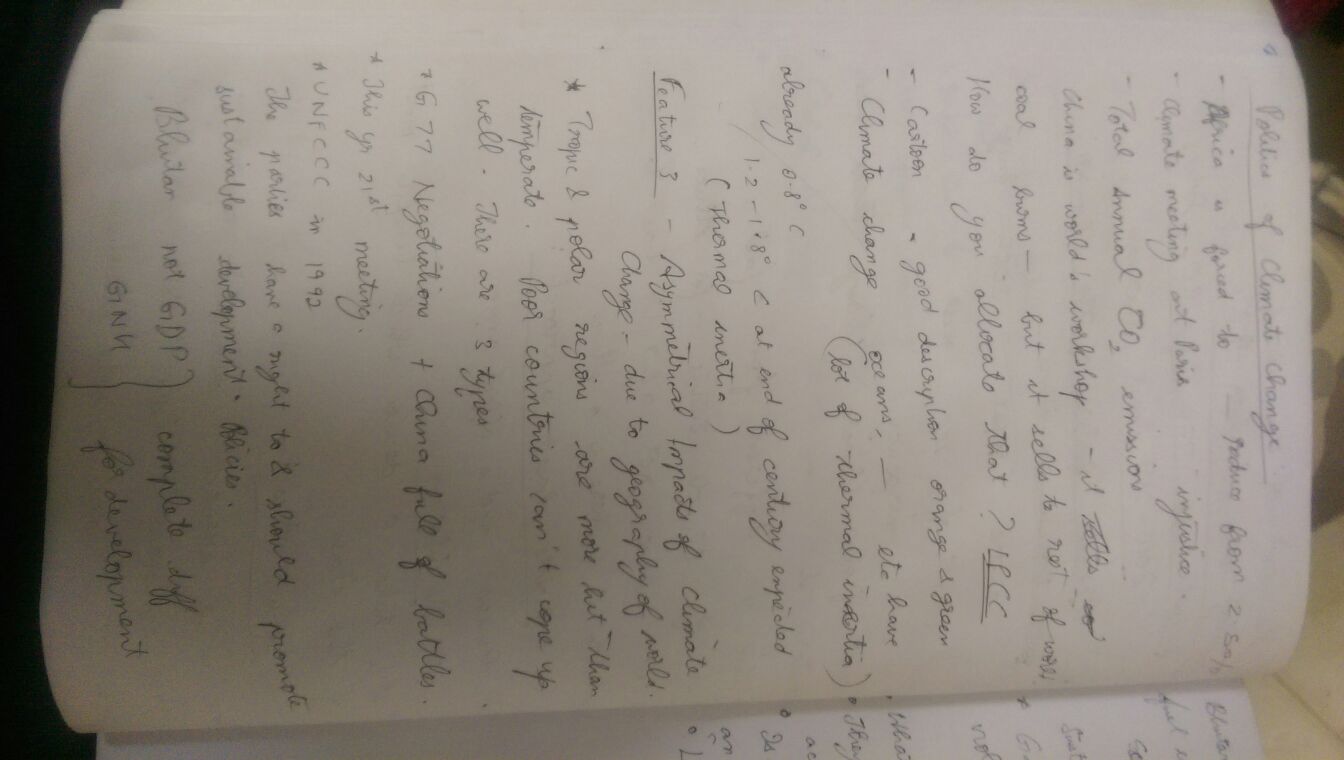 Politics of Climate Change
- Africa is forced to — reduce from 2.5%
- Climate meeting at Paris injustice.
- Total Annual CO2 emissions
China is world's workshop - it
coal burns — but it sells to rest of world.
How do you allocate that? IPCC
- Cartoon - good description orange & green
- Climate change oceans, — etc have
(lot of thermal insertia)
already 0.8°C
1.2 - 1.8°C at end of century expected
(Thermal inertia)
Feature 3 - Asymmetrical Impacts of climate
change - due to geography of world.
* Tropic & polar regions are more hit than
temperate. Poor countries can't cope up
well. There are 3 types
* G77 Negotiations + China full of battles.
* This yr 21st meeting.
* UNFCCC in 1992
The parties have a right to & should promote
sustainable development. Policies.
Bhutan not GDP } complete diff
GNH } for development
Bhutan
fuel
What
They
Is
an